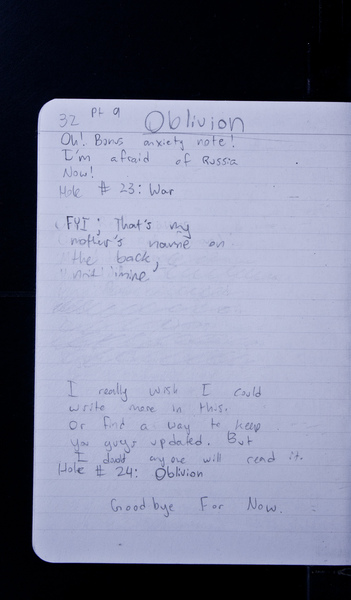 32 Pt 9 Oblivion
Oh! Bonus anxiety note!
I'm afraid of Russia
Now!
Hole # 23: War
FYI; That's my
mother's name on
the back,
not mine
I really wish I could
write more in this.
Or find a way to keep
you guys updated. But
I doubt anyone will read it.
Hole # 24: Oblivion
Goodbye For Now.